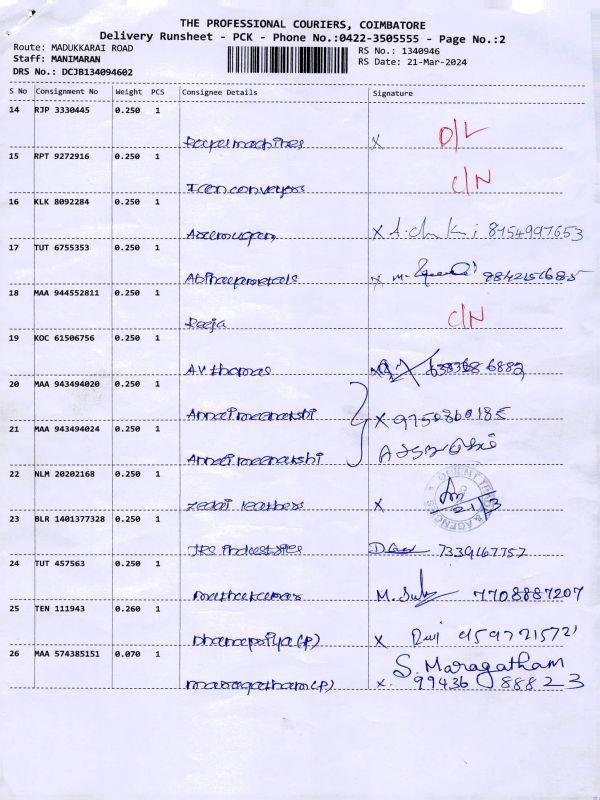 THE PROFESSIONAL COURIERS, COIMBATORE
Delivery Runsheet - PCK - Phone No.:0422-3505555 - Page No.:2
Route: MADUKKARAI ROAD
Staff: MANIMARAN
DRS No.: DCJB134094602
RS No.: 1340946
RS Date: 21-Mar-2024
S No Consignment No Weight PCS Consignee Details Signature
14 RJP 3330445 0.250 1
Royal machines X D/L
15 RPT 9272916 0.250 1
Icon conveyors C/N
16 KLK 8092284 0.250 1
Arumugam X 8754997653
17 TUT 6755353 0.250 1
metals X M.
18 MAA 944552811 0.250 1
Rooja C/N
19 KOC 61506756 0.250 1
AV thomas
20 MAA 943494020 0.250 1
Annai meenakshi X 9750860185
21 MAA 943494024 0.250 1
Annai meenakshi
22 NLM 20202168 0.250 1
leathers X 21/3
23 BLR 1401377328 0.250 1
Industries 7339167757
24 TUT 457563 0.250 1
muthukumar 7708887207
25 TEN 111943 0.260 1
Dhanapriya (P) X
26 MAA 574385151 0.070 1
S. Maragatham
maragatham (P) X. 99436 88823